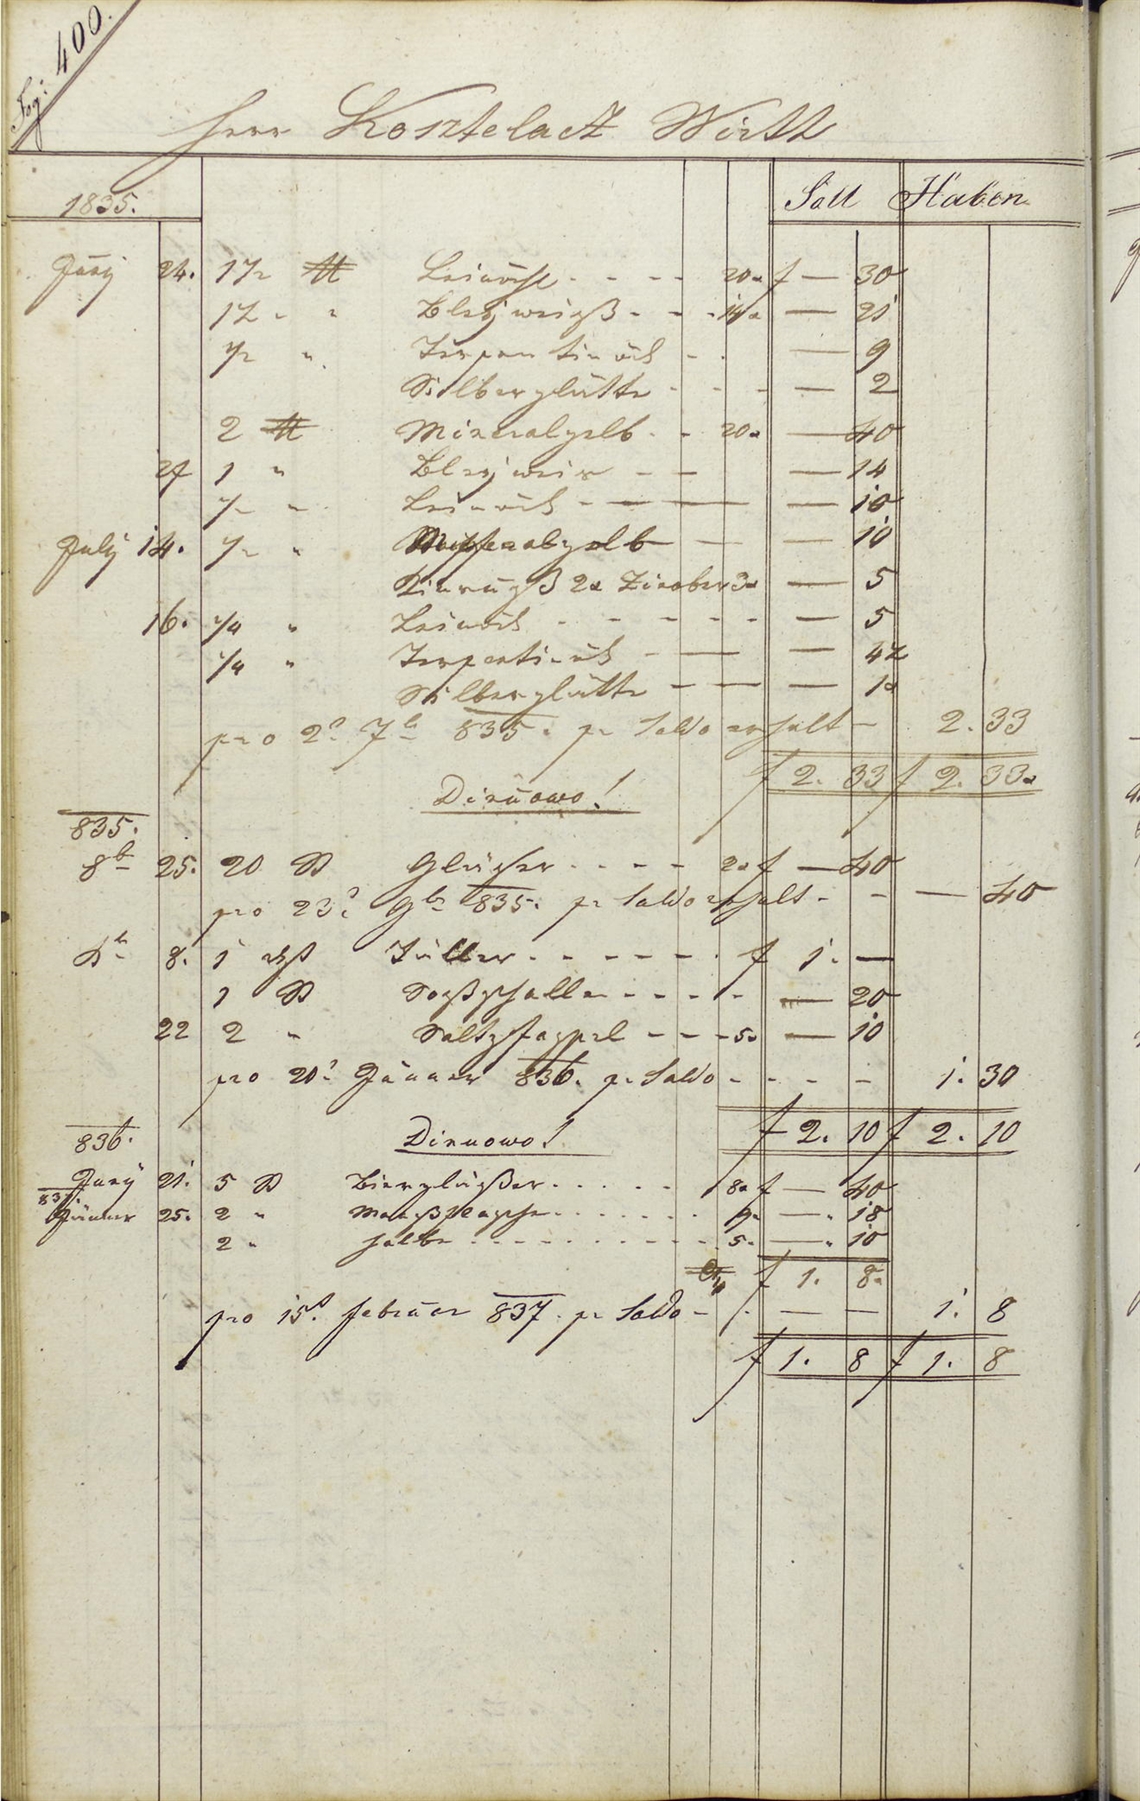 Fog: 400.
Herr Kosztelacz Wirth
1835. Soll Haben
Juny 24. 1½ ℔ Leinöhl - - - - 20x f — 30
1½ " Bleyweiß - - - 14x — 21
½ " Terpentinöl - - — 9
Silberglätte - - - — 2
2 ℔ Mineralgelb - - 20x — 40
27 1 " Bleyweis - — — 14
½ " Leinöl - — — — 10
July 14. ½ " Mineralgelb — — 10
Kienruß 2x Zinober 3x — 5
16. ¼ " Leinöl - - - - - - — 5
¼ " Terpentinöl - — — 4½
Silberglätte - — — 1x
pro 2n 7b 835. pr Saldo erhalt — 2. 33
f 2. 33 f 2. 33x
Dirnowo!
835.
8b 25. 20 St Gläser - - - - 2x f — 40
pro 23n 9b 835. pr Saldo erhalt - - — 40
Xb 8. 1 Teller - - - - - - f 1. —
1 St - - - - - — 20
22 2 " - - - 5x — 10
pro 20n Jänner 836. pr Saldo - - - - 1. 30
f 2. 10 f 2. 10
836. Dirnowo!
Juny 21. 5 St Biergläßer - - - - - 8x f — 40
837.
Jänner 25. 2 " Maaßflasche - - - - - - 9x — 18
2 " halbe - - - - - - - - - - 5x — 10
f 1. 8x
pro 15t Februar 837. pr Saldo - - — — 1. 8
f 1. 8 f 1. 8